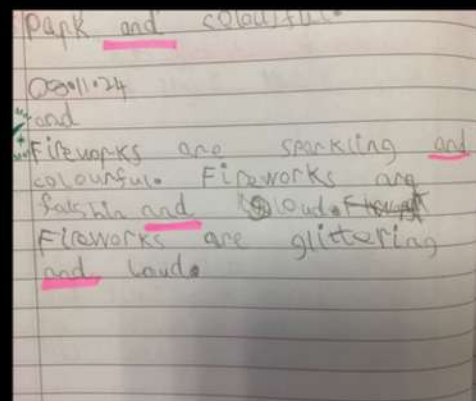 park and colourful.
08.11.24
and
Fireworks are sparkling and
colourful. Fireworks are
and loud.
Fireworks are glittering
and loud.